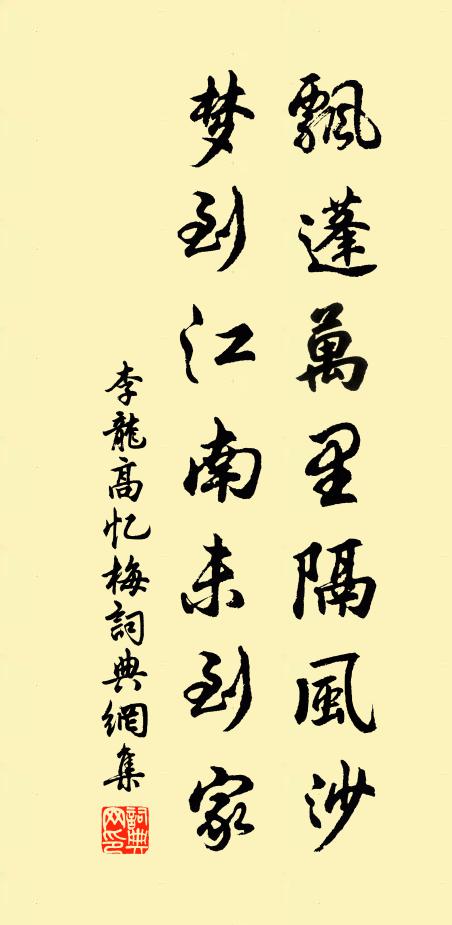 飄蓬萬里隔風沙
梦到江南未到家
李龍高忆梅詞典網集
詞典网印